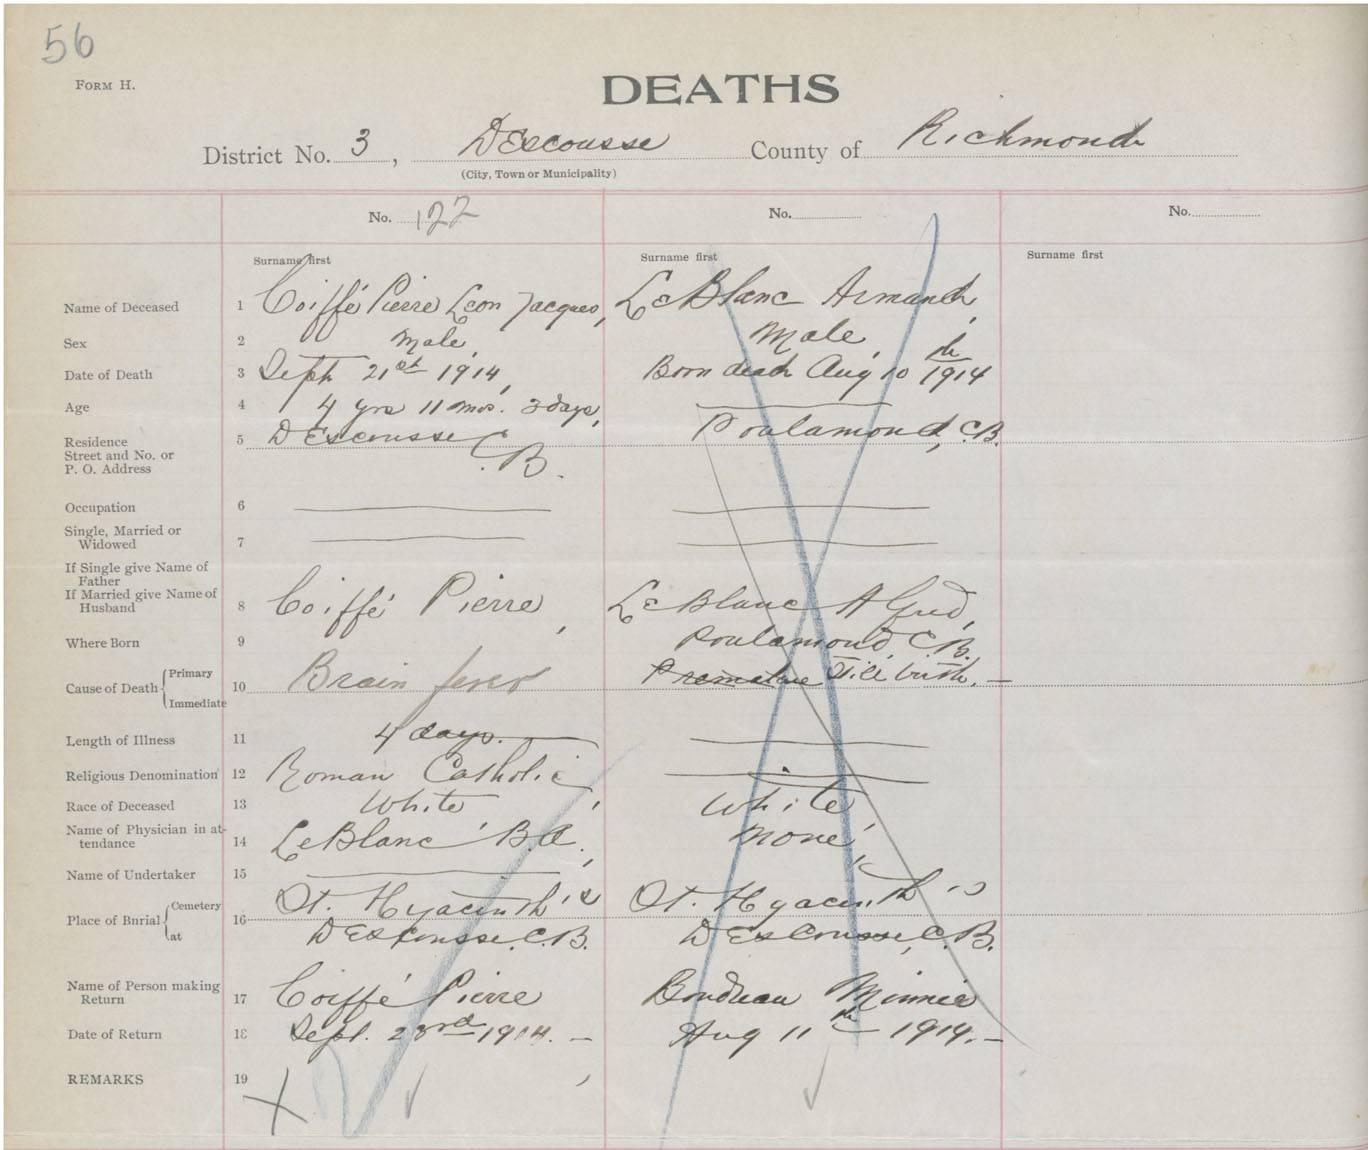 56
FORM H.
DEATHS
District No. 3, D'Escousse County of Richmond
(City, Town or Municipality)
No. 122 No. No.
Surname first Surname first Surname first
Name of Deceased 1 Coiffé Pierre Leon Jacques, LeBlanc Armand,
Sex 2 Male, Male,
Date of Death 3 Sept 21st 1914, Born dead Aug 10th 1914
Age 4 4 yrs 11 mos. 3 days,
Residence 5 D'Escousse Poulamond, C.B.
Street and No. or C.B.
P. O. Address
Occupation 6
Single, Married or
Widowed 7
If Single give Name of
Father
If Married give Name of
Husband 8 Coiffé Pierre, LeBlanc Alfred,
Where Born 9 Poulamond, C.B.
Cause of Death Primary 10 Brain fever Premature Still birth. —
Immediate
Length of Illness 11 4 days.
Religious Denomination 12 Roman Catholic,
Race of Deceased 13 White, White,
Name of Physician in at-
tendance 14 LeBlanc B.A., None,
Name of Undertaker 15
Place of Burial Cemetery 16 St. Hyacinth's St. Hyacinth's
at D'Escousse, C.B. D'Escousse, C.B.
Name of Person making
Return 17 Coiffé Pierre Boudreau Minnie
Date of Return 18 Sept. 23rd 1914. — Aug 11th 1914. —
REMARKS 19